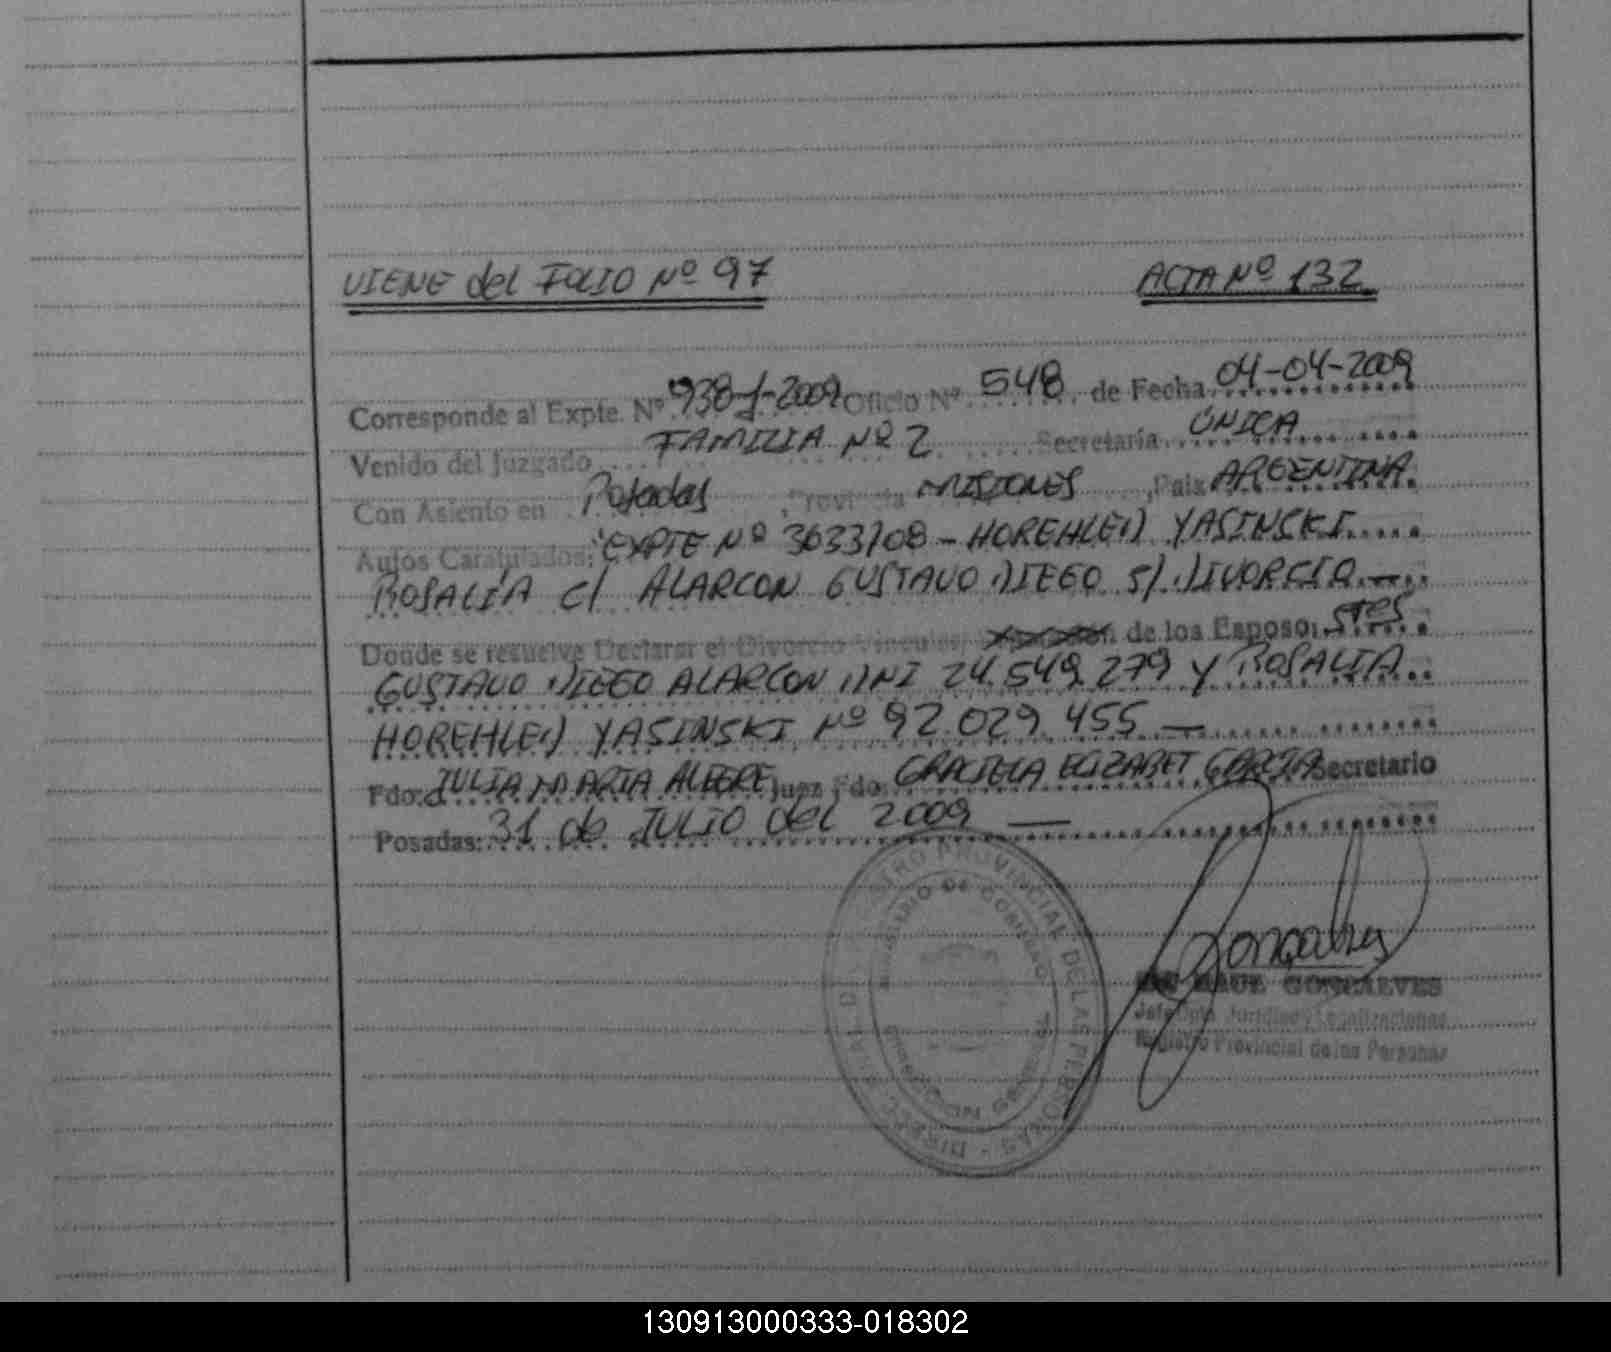 VIENE del FOLIO Nº 97 ACTA Nº 132
Corresponde al Expte. Nº 938-J-2009 Oficio Nº 548 de Fecha 04-04-2009
Venido del Juzgado FAMILIA Nº 2 Secretaría ÚNICA
Con Asiento en Posadas, Provincia MISIONES, País ARGENTINA
Autos Caratulados: "EXPTE Nº 3633/08 - HOREHLED YASINSKI
ROSALIA C/ ALARCON GUSTAVO DIEGO S/ DIVORCIO. —
Donde se resuelve Declarar el Divorcio Vincular, de los Esposo, stes
GUSTAVO DIEGO ALARCON DNI 24.549.279 Y ROSALIA
HOREHLED YASINSKI Nº 92.029.455 —
Fdo: JULIA MARIA ALEGRE Juez Fdo. GRACIELA ELIZABET GARCIA Secretario
Posadas: 31 de JULIO del 2009 —
REGISTRO PROVINCIAL DE LAS PERSONAS
MINISTERIO DE GOBIERNO
Gonçalves
RAUL GONCALVES
Jefe Dpto. Jurídico y Legalizaciones
Registro Provincial de las Personas
130913000333-018302